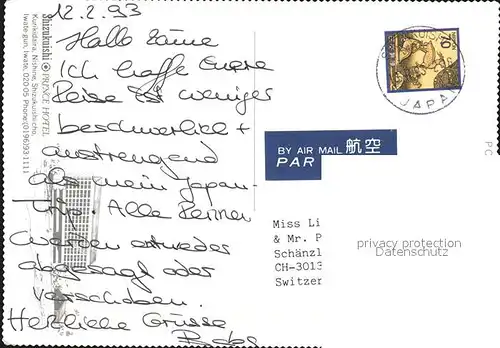 12.2.93
Hallo
Ich hoffe Eure
Reise ist weniger
beschwerlich +
anstrengend
als mein Japan-
Trip. Alle Rennen
werden entweder
abgesagt oder
verschoben.
Herzliche Grüsse
Shizukuishi PRINCE HOTEL
Kurikidaira, Nishine, Shizukuishi-cho,
Iwate-gun, Iwate, 020-05 Phone:(0196)93-1111
JAPAN
BY AIR MAIL 航空
PAR
Miss Li
& Mr. P
Schänzl
CH-3013
Switzer
privacy protection
Datenschutz
PC